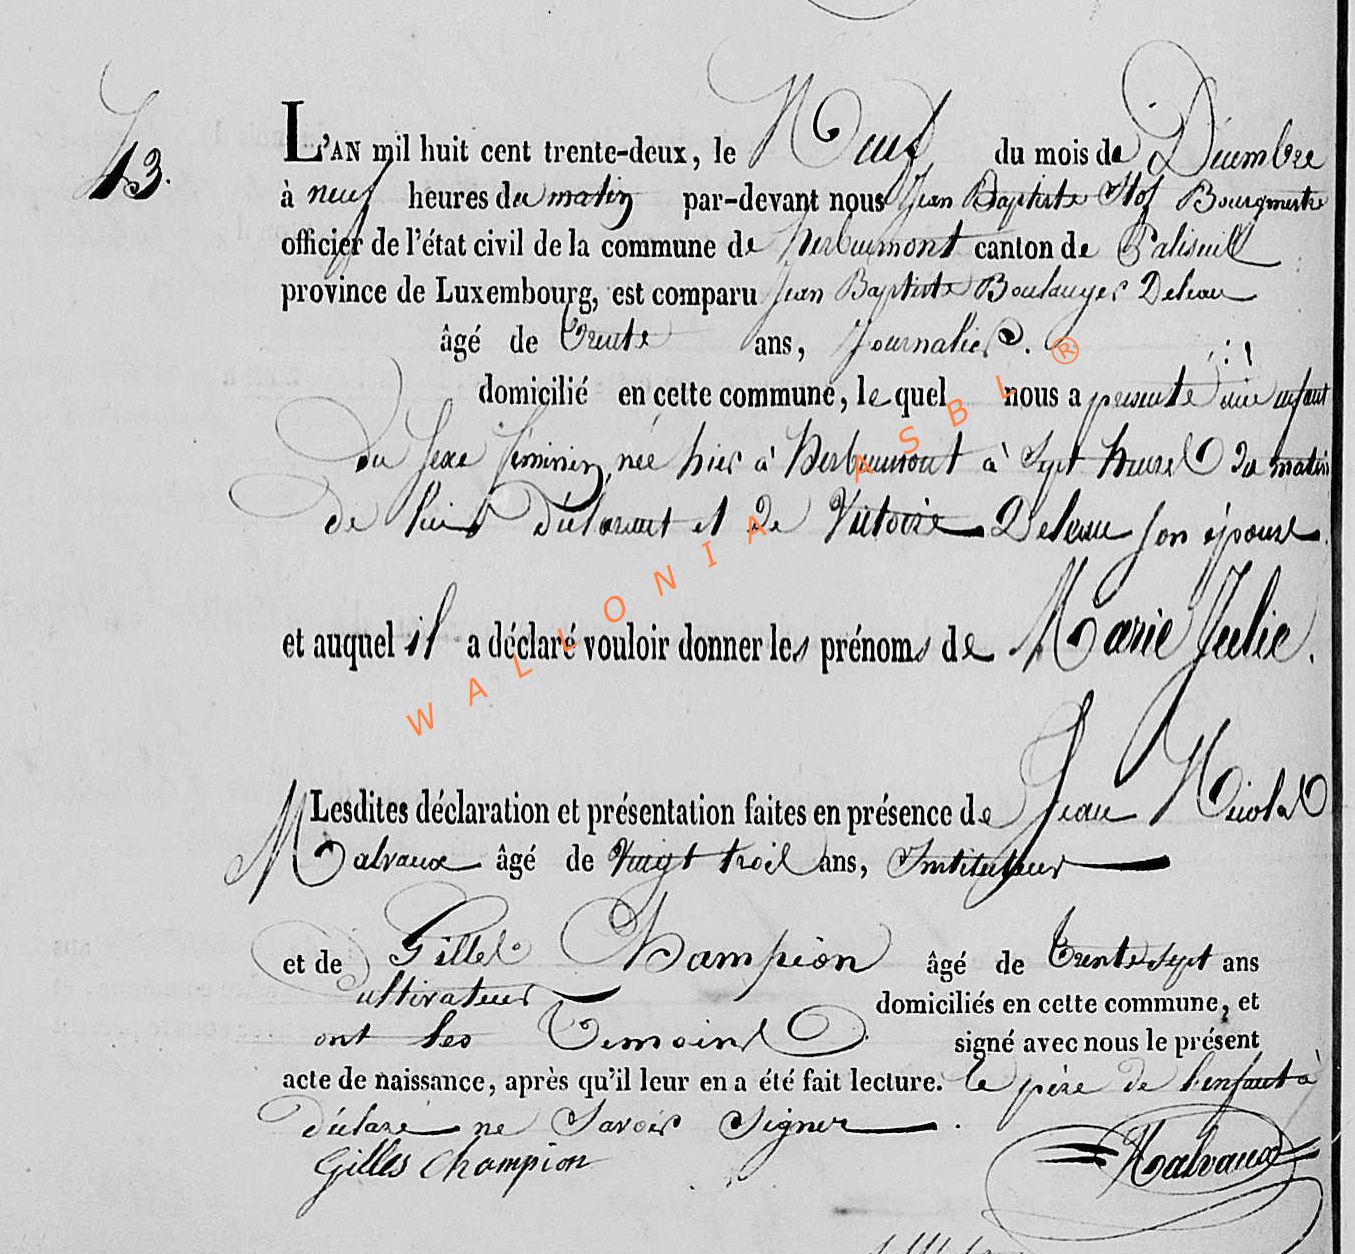 43.
L'AN mil huit cent trente-deux, le Neuf du mois de Décembre
à neuf heures du matin par-devant nous Jean Baptiste Stof Bourgmestre
officier de l'état civil de la commune de herbeumont canton de Paliseull
province de Luxembourg, est comparu Jean Baptiste Boulanger Deleau
âgé de trente ans, Journalier.
domicilié en cette commune, le quel nous a presenté une enfant
du sexe féminin, née hier à herbeumont à sept heures du matin
de lui déclarant et de Victoire Deleau son épouse.
et auquel il a déclaré vouloir donner les prénoms de Marie Julie.
Lesdites déclaration et présentation faites en présence de Jean Nicolas
Malvaux âgé de vingt trois ans, Instituteur
et de Gilles Champion âgé de trente sept ans
cultivateur domiciliés en cette commune, et
ont les Temoins signé avec nous le présent
acte de naissance, après qu'il leur en a été fait lecture. le père de l'enfant à
déclaré ne savoir signer.
Gilles Champion Malvaux
WALLONIA ASBL ®